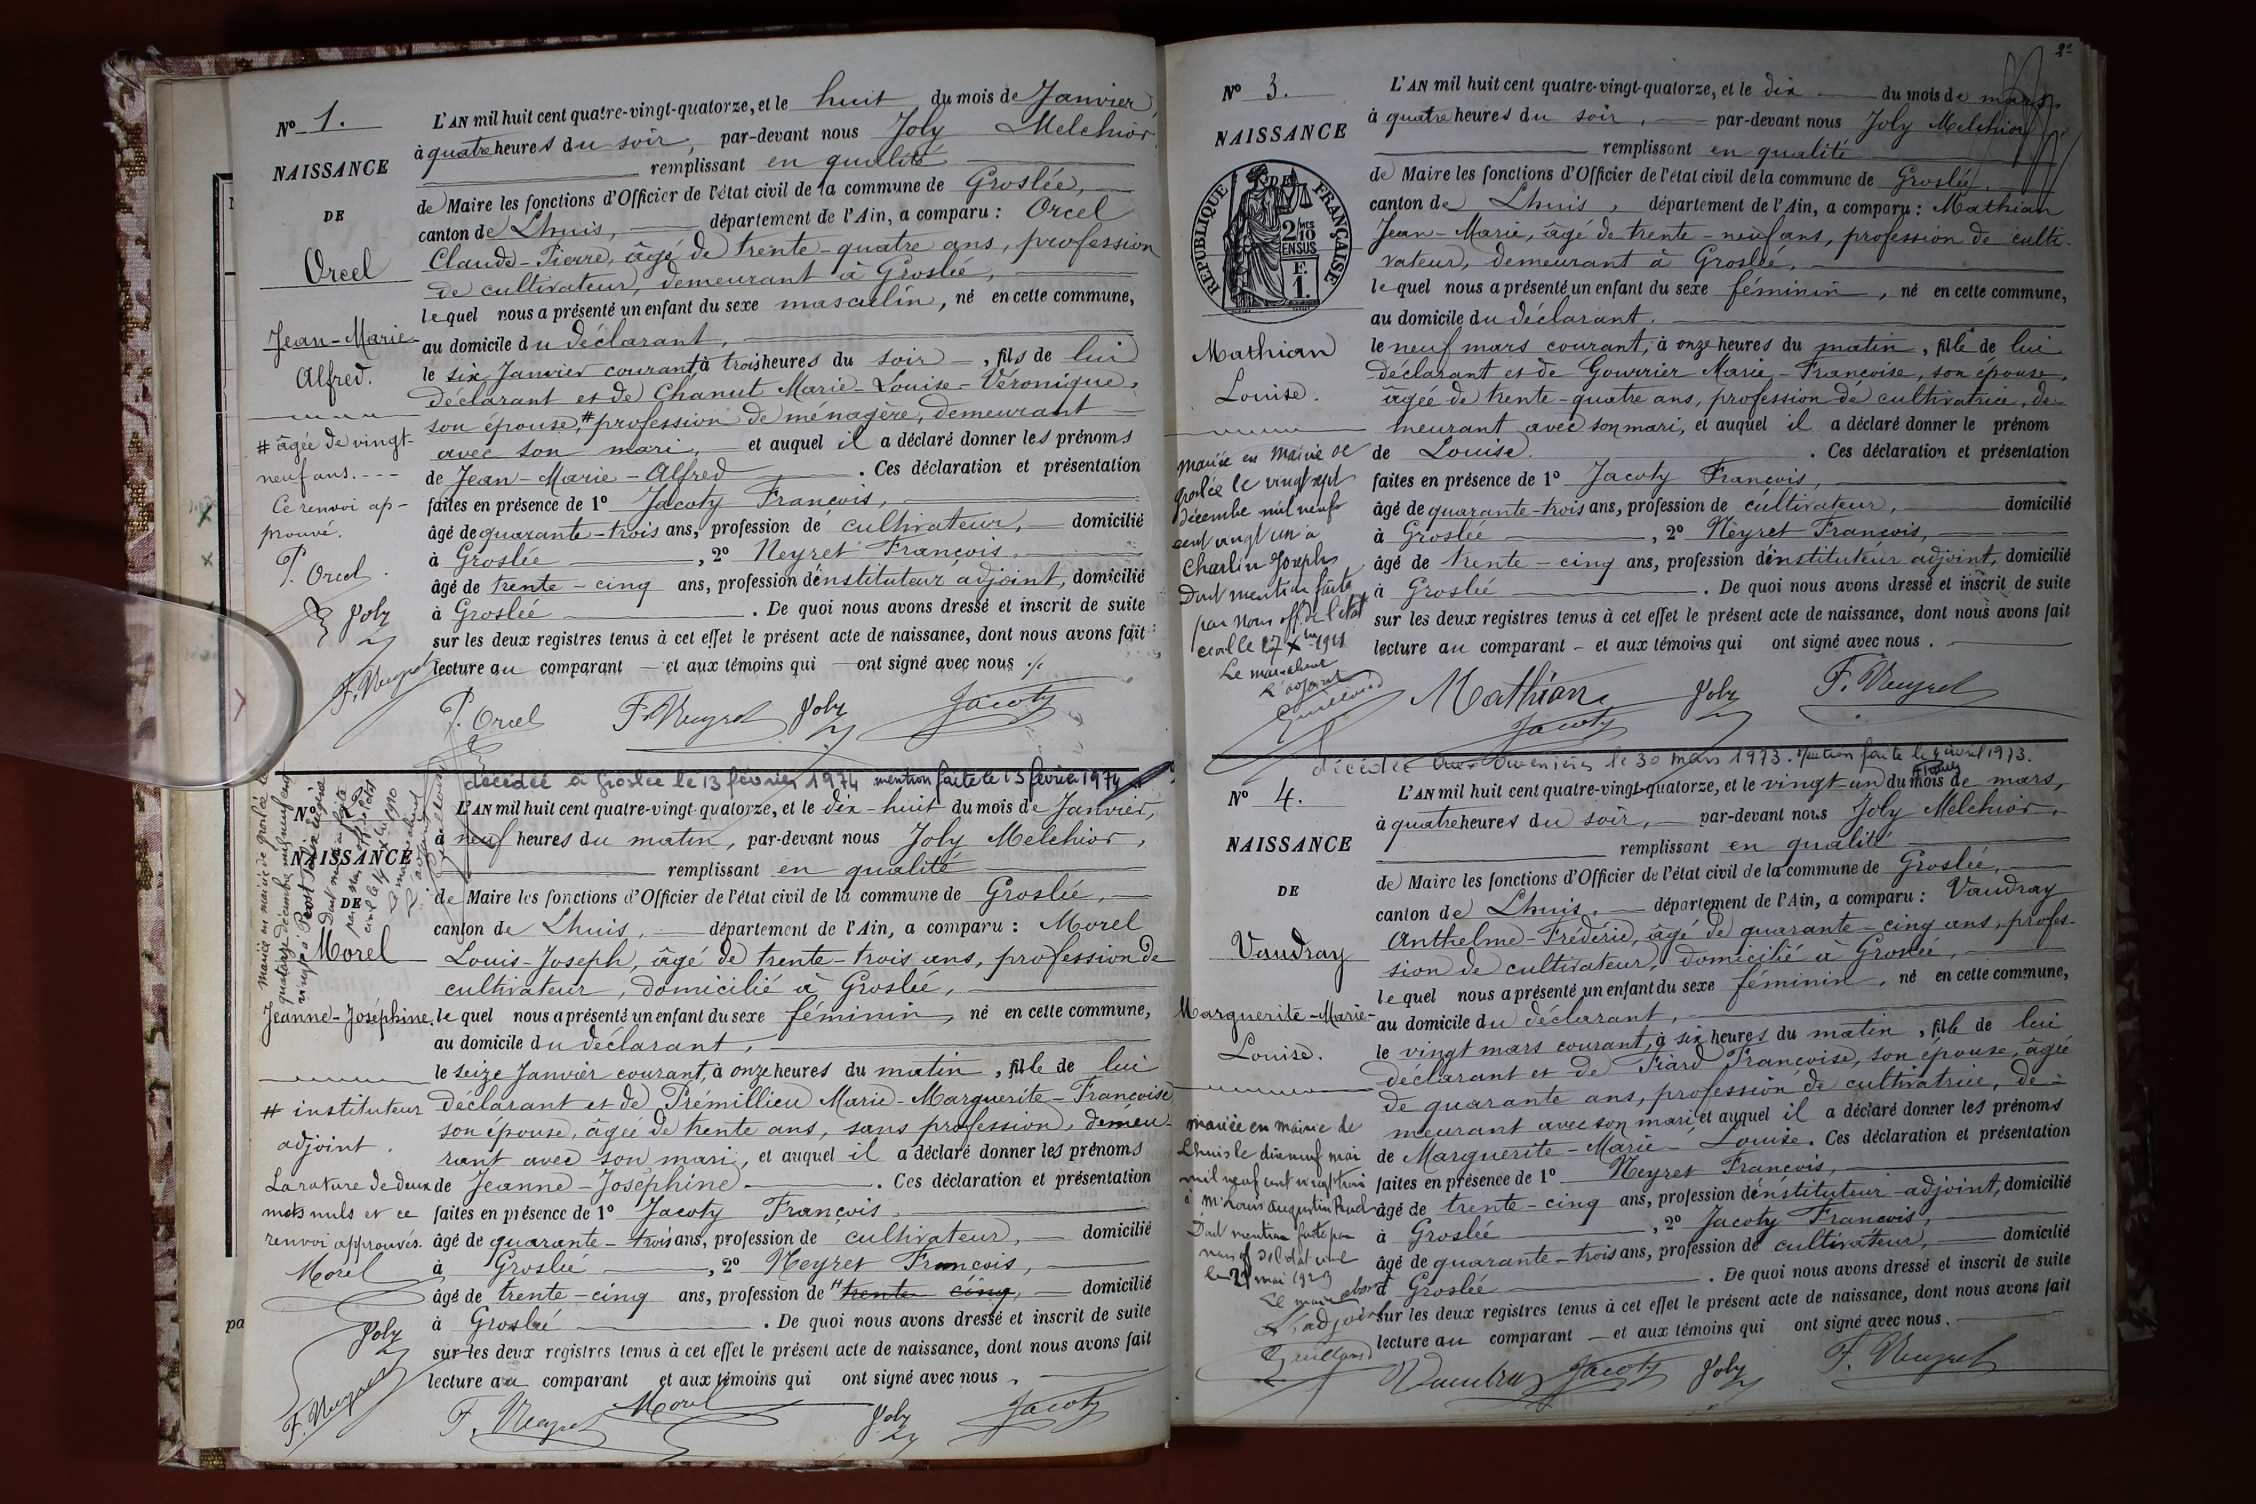 Nº 1.
NAISSANCE
DE
Orcel
Jean-Marie
Alfred.
# âgée de vingt-
neuf ans. - - -
Ce renvoi ap-
prouvé.
P. Orcel.
Joly
F. Neyret
L'AN mil huit cent quatre-vingt-quatorze, et le huit du mois de Janvier,
à quatre heures du soir, par-devant nous Joly Melchior,
remplissant en qualité
de Maire les fonctions d'Officier de l'état civil de la commune de Groslée,
canton de Lhuis, département de l'Ain, a comparu : Orcel
Claude-Pierre, âgé de trente-quatre ans, profession
de cultivateur, demeurant à Groslée,
lequel nous a présenté un enfant du sexe masculin, né en cette commune,
au domicile du déclarant,
le six Janvier courant, à trois heures du soir, fils de lui
déclarant et de Chanut Marie-Louise-Véronique,
son épouse, # profession de ménagère, demeurant
avec son mari, et auquel il a déclaré donner les prénoms
de Jean-Marie-Alfred. Ces déclaration et présentation
faites en présence de 1º Jacoty François,
âgé de quarante-trois ans, profession de cultivateur, domicilié
à Groslée, 2º Neyret François,
âgé de trente-cinq ans, profession d'instituteur adjoint, domicilié
à Groslée. De quoi nous avons dressé et inscrit de suite
sur les deux registres tenus à cet effet le présent acte de naissance, dont nous avons fait
lecture au comparant et aux témoins qui ont signé avec nous ./.
P. Orcel F. Neyret Joly Jacoty
décédée à Groslée le 13 février 1974 mention faite le 13 février 1974
Nº
NAISSANCE
DE
Morel
Jeanne-Joséphine.
mariée en mairie de Groslée le
quatorze décembre mil neuf cent
vingt à
Dont mention faite
par nous off. de l'état
civil le 14 Xbre 1920
# instituteur
adjoint.
La rature de deux
mots nuls et ce
renvoi approuvés.
Morel
Joly
F. Neyret
L'AN mil huit cent quatre-vingt-quatorze, et le dix-huit du mois de Janvier,
à neuf heures du matin, par-devant nous Joly Melchior,
remplissant en qualité
de Maire les fonctions d'Officier de l'état civil de la commune de Groslée,
canton de Lhuis, département de l'Ain, a comparu : Morel
Louis-Joseph, âgé de trente-trois ans, profession de
cultivateur, domicilié à Groslée,
lequel nous a présenté un enfant du sexe féminin, né en cette commune,
au domicile du déclarant,
le seize Janvier courant, à onze heures du matin, fille de lui
déclarant et de Prémillieu Marie-Marguerite-Françoise
son épouse, âgée de trente ans, sans profession, demeu-
rant avec son mari, et auquel il a déclaré donner les prénoms
de Jeanne-Joséphine. Ces déclaration et présentation
faites en présence de 1º Jacoty François,
âgé de quarante-trois ans, profession de cultivateur, domicilié
à Groslée, 2º Neyret François,
âgé de trente-cinq ans, profession de # trente cinq, domicilié
à Groslée. De quoi nous avons dressé et inscrit de suite
sur les deux registres tenus à cet effet le présent acte de naissance, dont nous avons fait
lecture au comparant et aux témoins qui ont signé avec nous.
F. Neyret Morel Joly Jacoty
pa
2e
Nº 3.
NAISSANCE
DE
RÉPUBLIQUE FRANÇAISE
2/10MES
EN SUS
F.
1.
Mathian
Louise.
mariée en Mairie de
Groslée le vingt sept
décembre mil neuf
cent vingt un à
Charlin Joseph
Dont mention faite
par nous off. de l'état
civil le 27 Xbre 1921
Le maire
L'adjoint
L'AN mil huit cent quatre-vingt-quatorze, et le dix du mois de mars,
à quatre heures du soir, par-devant nous Joly Melchior
remplissant en qualité
de Maire les fonctions d'Officier de l'état civil de la commune de Groslée,
canton de Lhuis, département de l'Ain, a comparu : Mathian
Jean-Marie, âgé de trente-neuf ans, profession de culti-
vateur, demeurant à Groslée,
lequel nous a présenté un enfant du sexe féminin, né en cette commune,
au domicile du déclarant.
le neuf mars courant, à onze heures du matin, fille de lui
déclarant et de Gouvrier Marie-Françoise, son épouse,
âgée de trente-quatre ans, profession de cultivatrice, de-
meurant avec son mari, et auquel il a déclaré donner le prénom
de Louise. Ces déclaration et présentation
faites en présence de 1º Jacoty François,
âgé de quarante-trois ans, profession de cultivateur, domicilié
à Groslée, 2º Neyret François,
âgé de trente-cinq ans, profession d'instituteur adjoint, domicilié
à Groslée. De quoi nous avons dressé et inscrit de suite
sur les deux registres tenus à cet effet le présent acte de naissance, dont nous avons fait
lecture au comparant et aux témoins qui ont signé avec nous.
Mathian Jacoty Joly F. Neyret
décédée aux Avenières le 30 mars 1973. Mention faite le 4 avril 1973.
Nº 4.
NAISSANCE
DE
Vaudray
Marguerite-Marie-
Louise.
mariée en mairie de
Lhuis le dix neuf mai
mil neuf cent vingt trois
à Mr Louis Augustin
Dont mention faite par
nous off de l'état civil
le 21 mai 1923
Le maire
L'adjoint
L'AN mil huit cent quatre-vingt-quatorze, et le vingt-un du mois de mars,
à quatre heures du soir, par-devant nous Joly Melchior,
remplissant en qualité
de Maire les fonctions d'Officier de l'état civil de la commune de Groslée,
canton de Lhuis, département de l'Ain, a comparu : Vaudray
Anthelme-Frédéric, âgé de quarante-cinq ans, profes-
sion de cultivateur, domicilié à Groslée,
lequel nous a présenté un enfant du sexe féminin, né en cette commune,
au domicile du déclarant,
le vingt mars courant, à six heures du matin, fille de lui
déclarant et de Fiard Françoise, son épouse, âgée
de quarante ans, profession de cultivatrice, de-
meurant avec son mari et auquel il a déclaré donner les prénoms
de Marguerite-Marie-Louise. Ces déclaration et présentation
faites en présence de 1º Neyret François,
âgé de trente-cinq ans, profession d'instituteur-adjoint, domicilié
à Groslée, 2º Jacoty François,
âgé de quarante-trois ans, profession de cultivateur, domicilié
à Groslée. De quoi nous avons dressé et inscrit de suite
sur les deux registres tenus à cet effet le présent acte de naissance, dont nous avons fait
lecture au comparant et aux témoins qui ont signé avec nous.
Vaudray Jacoty Joly F. Neyret